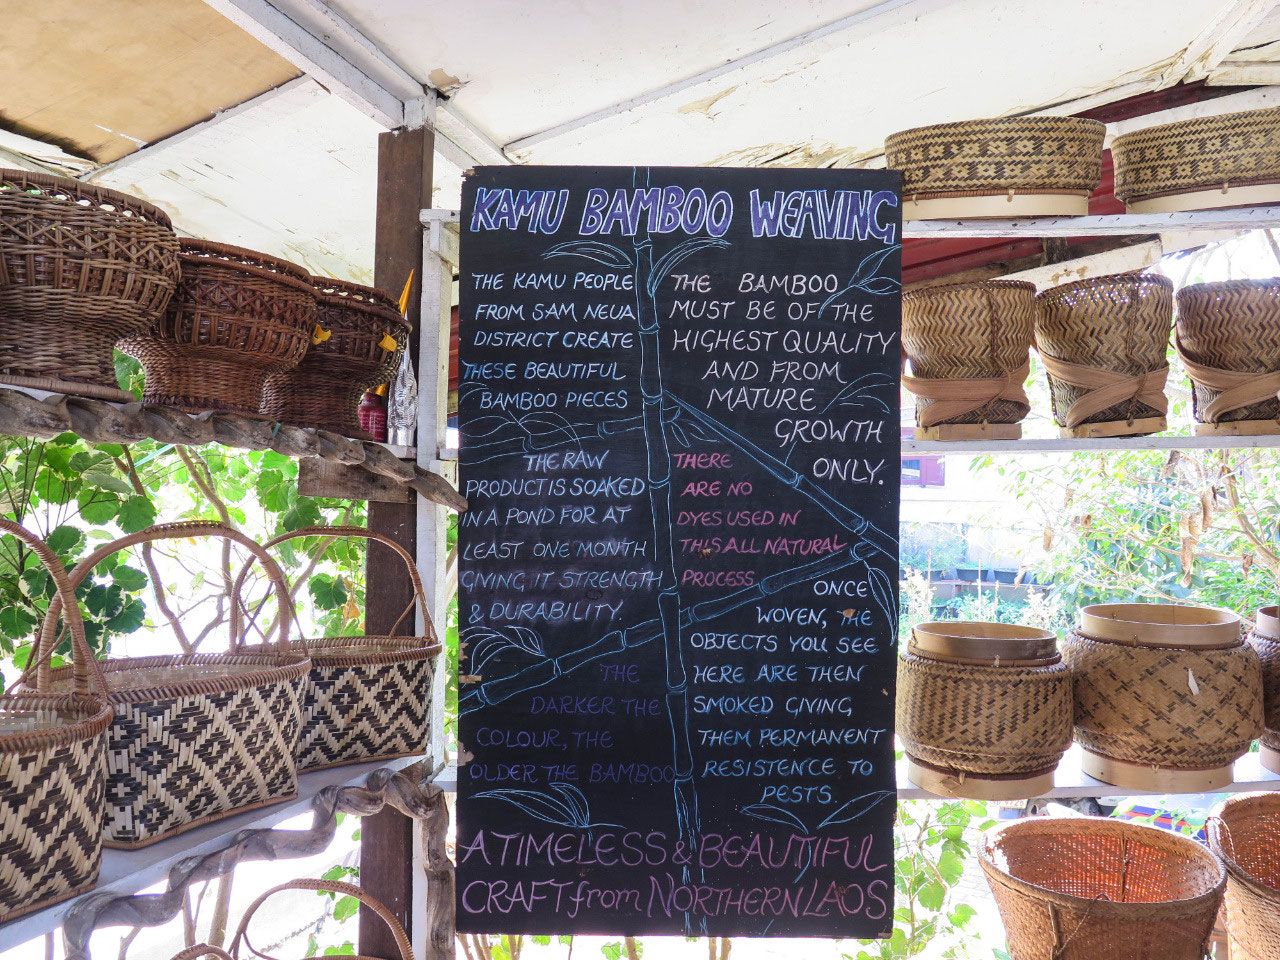 KAMU BAMBOO WEAVING
THE KAMU PEOPLE
FROM SAM NEUA
DISTRICT CREATE
THESE BEAUTIFUL
BAMBOO PIECES
THE RAW
PRODUCT IS SOAKED
IN A POND FOR AT
LEAST ONE MONTH
GIVING IT STRENGTH
& DURABILITY.
THE
DARKER THE
COLOUR, THE
OLDER THE BAMBOO
THE BAMBOO
MUST BE OF THE
HIGHEST QUALITY
AND FROM
MATURE
GROWTH
ONLY.
THERE
ARE NO
DYES USED IN
THIS ALL NATURAL
PROCESS
ONCE
WOVEN, THE
OBJECTS YOU SEE
HERE ARE THEN
SMOKED GIVING
THEM PERMANENT
RESISTENCE TO
PESTS.
A TIMELESS & BEAUTIFUL
CRAFT from NORTHERN LAOS